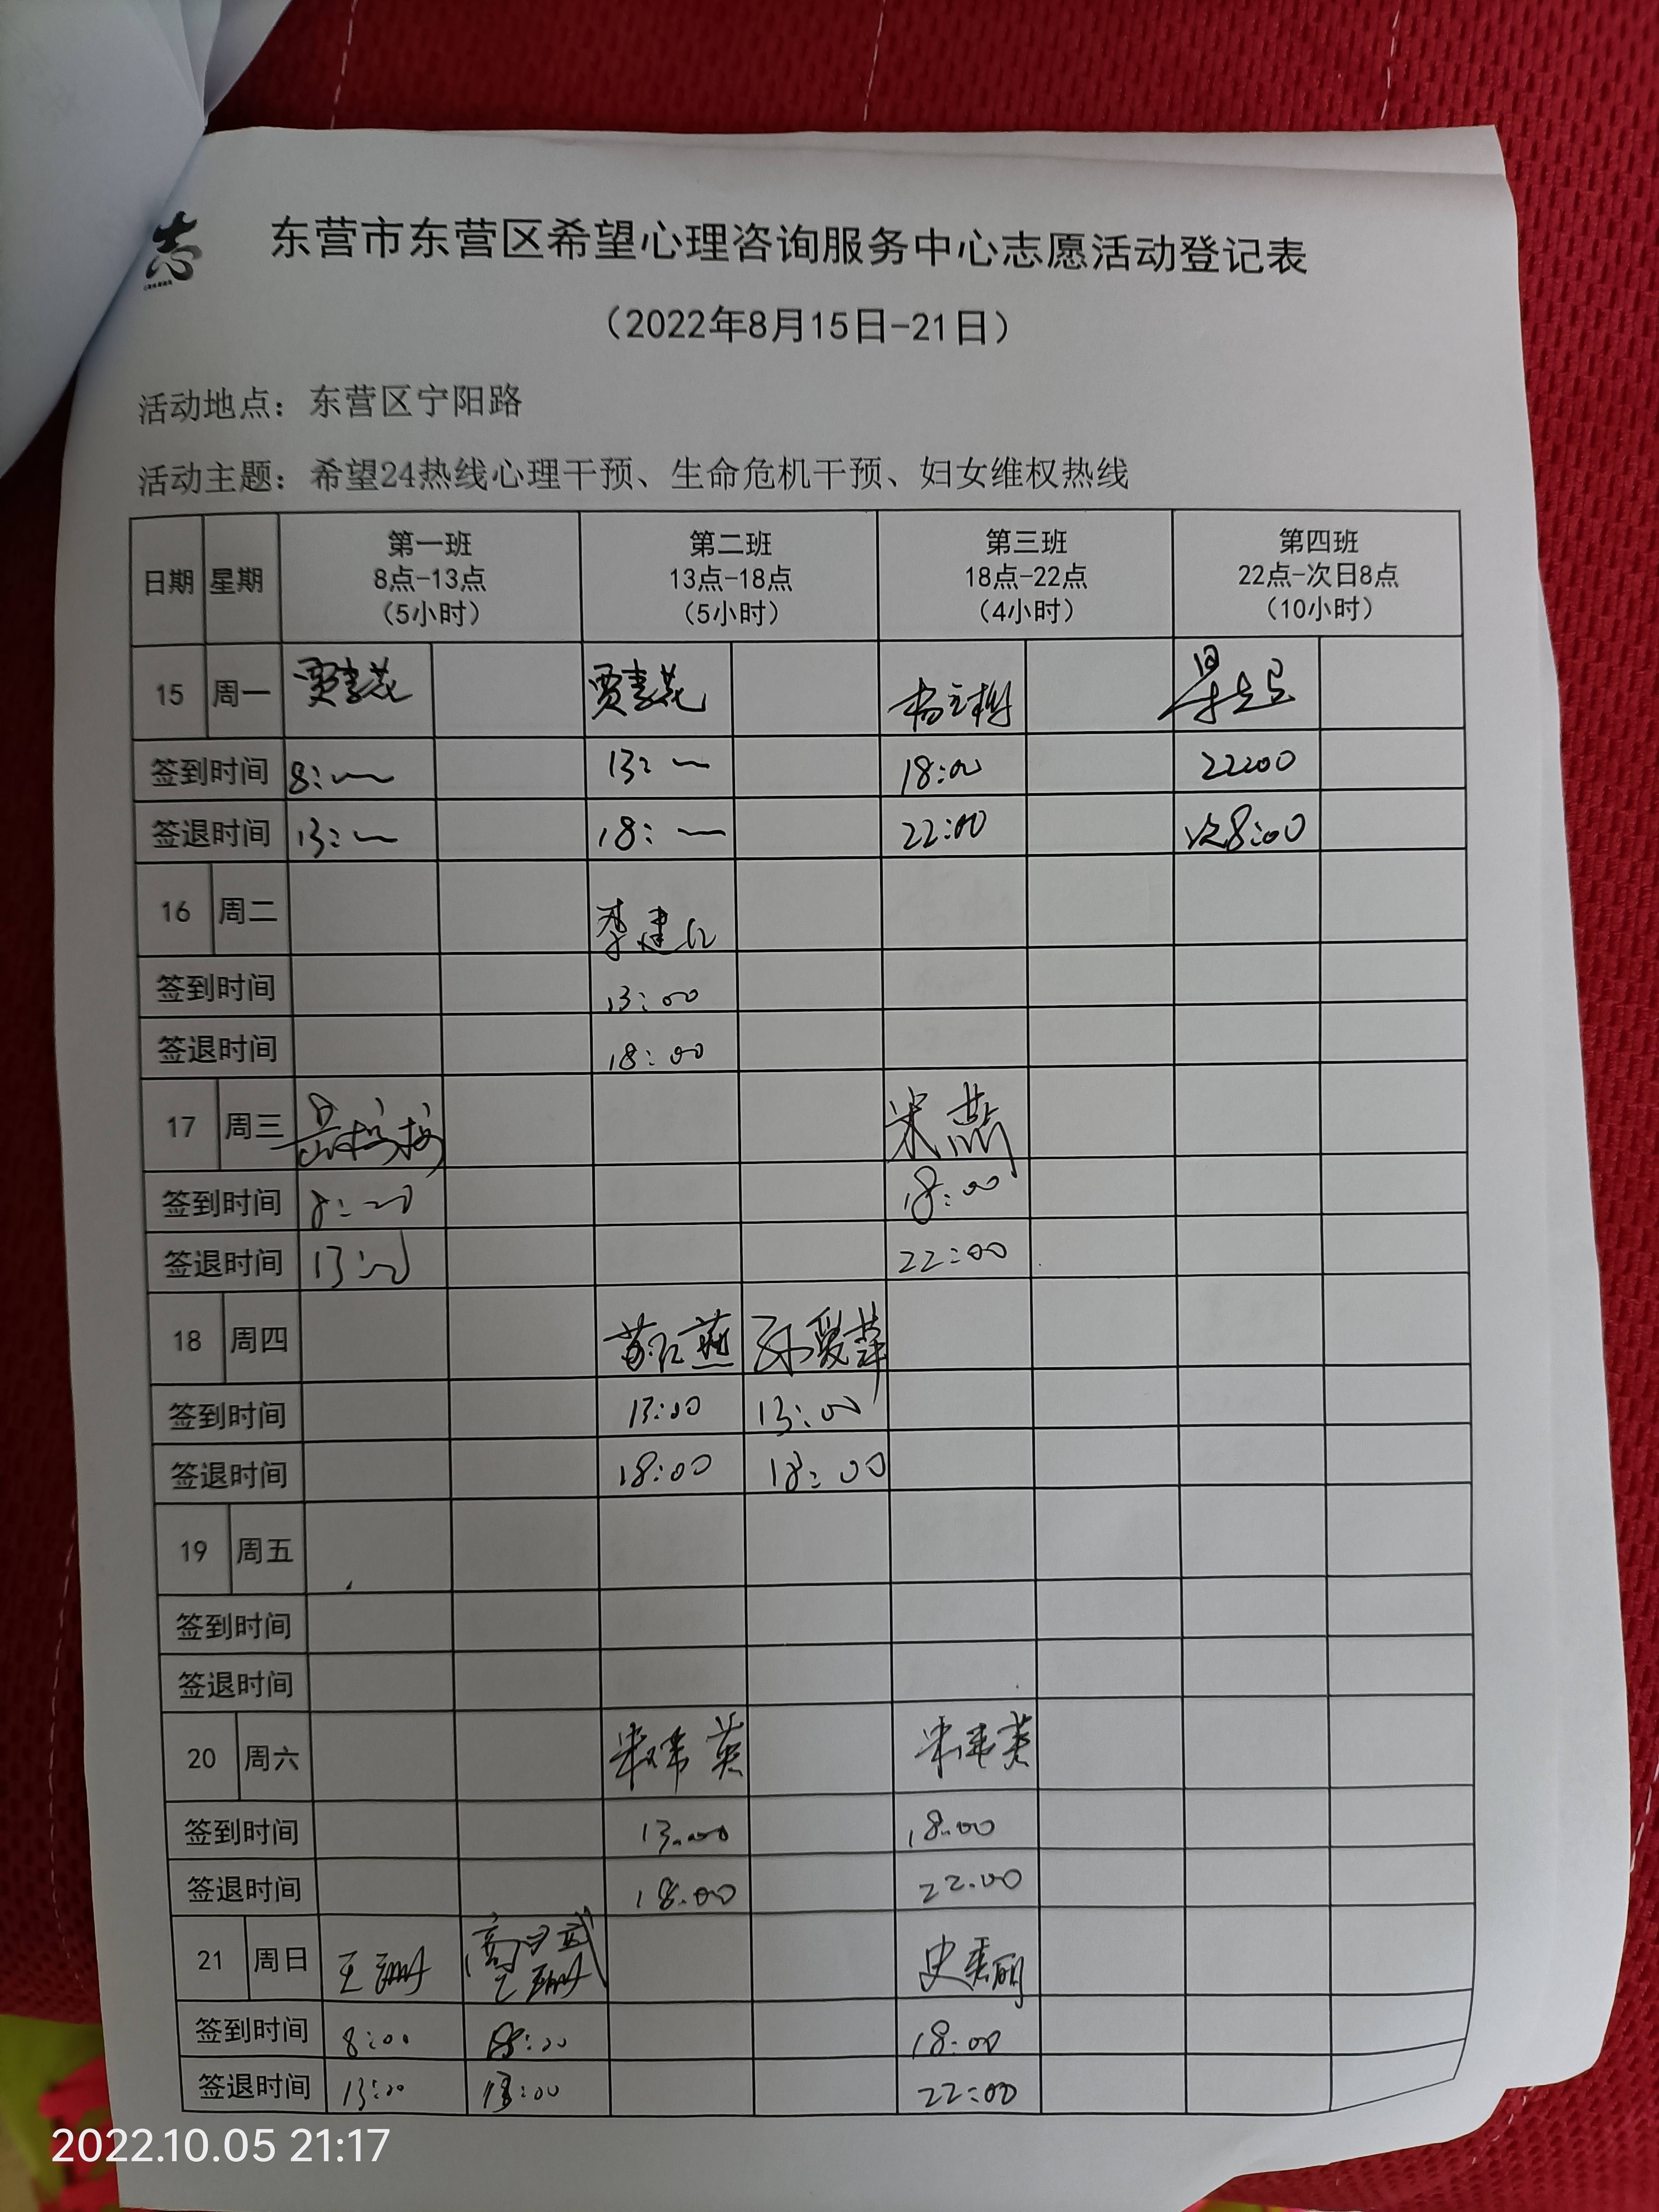 志
东营市东营区希望心理咨询服务中心志愿活动登记表
（2022年8月15日-21日）
活动地点：东营区宁阳路
活动主题：希望24热线心理干预、生命危机干预、妇女维权热线
日期 星期 第一班 8点-13点 （5小时） 第二班 13点-18点 （5小时） 第三班 18点-22点 （4小时） 第四班 22点-次日8点 （10小时）
15 周一
签到时间 8: 13: 18:00 22:00
签退时间 13: 18: 22:00 次8:00
16 周二 李建红
签到时间 13:00
签退时间 18:00
17 周三 宋燕
签到时间 8:00 18:00
签退时间 13:00 22:00
18 周四 苏红燕 孙爱萍
签到时间 13:00 13:00
签退时间 18:00 18:00
19 周五
签到时间
签退时间
20 周六
签到时间 13:00 18:00
签退时间 18:00 22:00
21 周日 史秀丽
签到时间 8:00 18:00
签退时间 13:00 13:00 22:00
2022.10.05 21:17